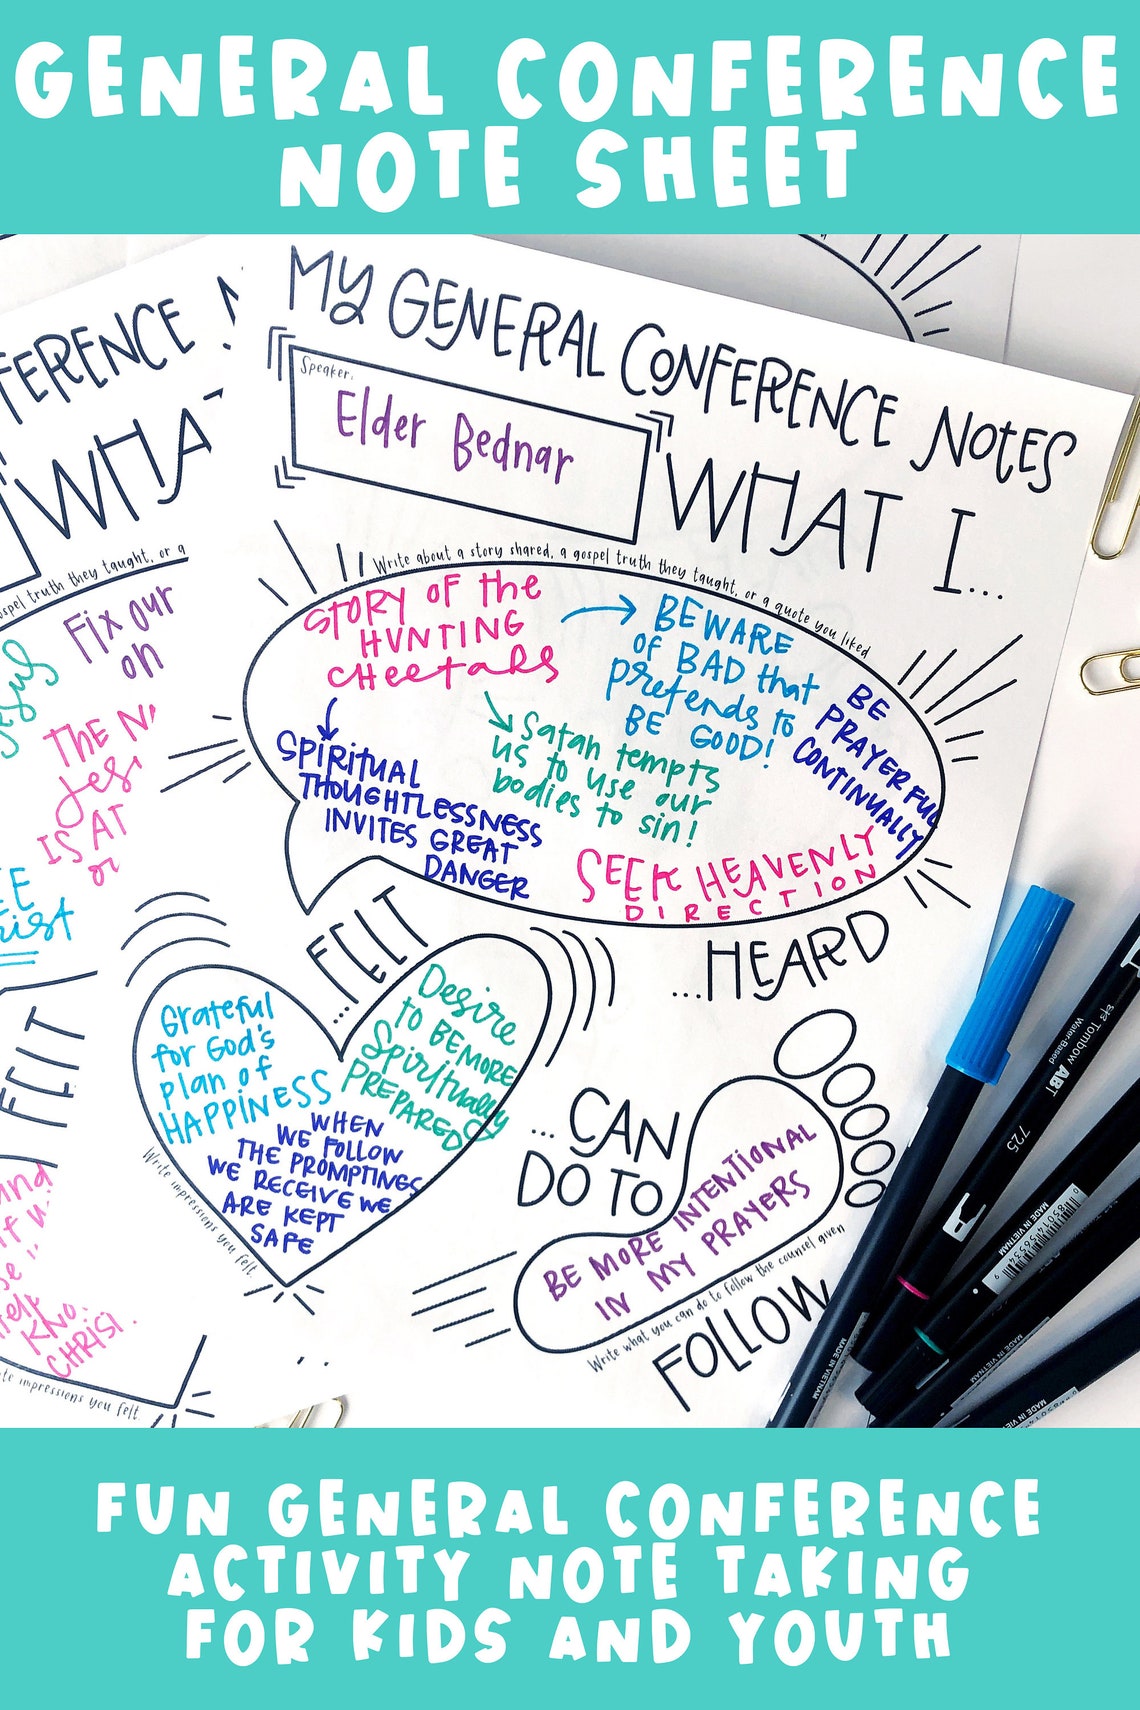 GENERAL CONFERENCE
NOTE SHEET
My GENERAL CONFERENCE NOTES
Speaker:
Elder Bednar
WHAT I...
Write about a story shared, a gospel truth they taught, or a quote you liked
STORY OF the
HUNTING
CHeetahs
BEWARE
of BAD that
pretends to
BE GOOD!
BE
PRAYERFUL
CONTINUALLY
Satan tempts
us to use our
bodies to sin!
SPIRITUAL
THOUGHTLESSNESS
INVITES GREAT
DANGER
SEEK HEAVENLY
DIRECTION
...HEARD
...FELT
Grateful
for God's
plan of
HAPPINESS
Desire
to BE MORE
Spiritually
PREPARED
WHEN
WE FOLLOW
THE PROMPTINGS
WE RECEIVE WE
ARE KEPT
SAFE
Write impressions you felt.
...CAN
DO TO
BE MORE INTENTIONAL
IN MY PRAYERS
Write what you can do to follow the counsel given
FOLLOW
FERENCE
WHA
ospel truth they taught, or a
Fix our
on
THE N
Jes
IS AT
or
FELT
and
KNO
CHRIST.
te impressions you felt.
Tombow ABT
Water-Based
725
MADE IN VIETNAM
MADE IN VIETNAM
MADE IN VIETNAM
MADE IN VIETNAM
FUN GENERAL CONFERENCE
ACTIVITY NOTE TAKING
FOR KIDS AND YOUTH